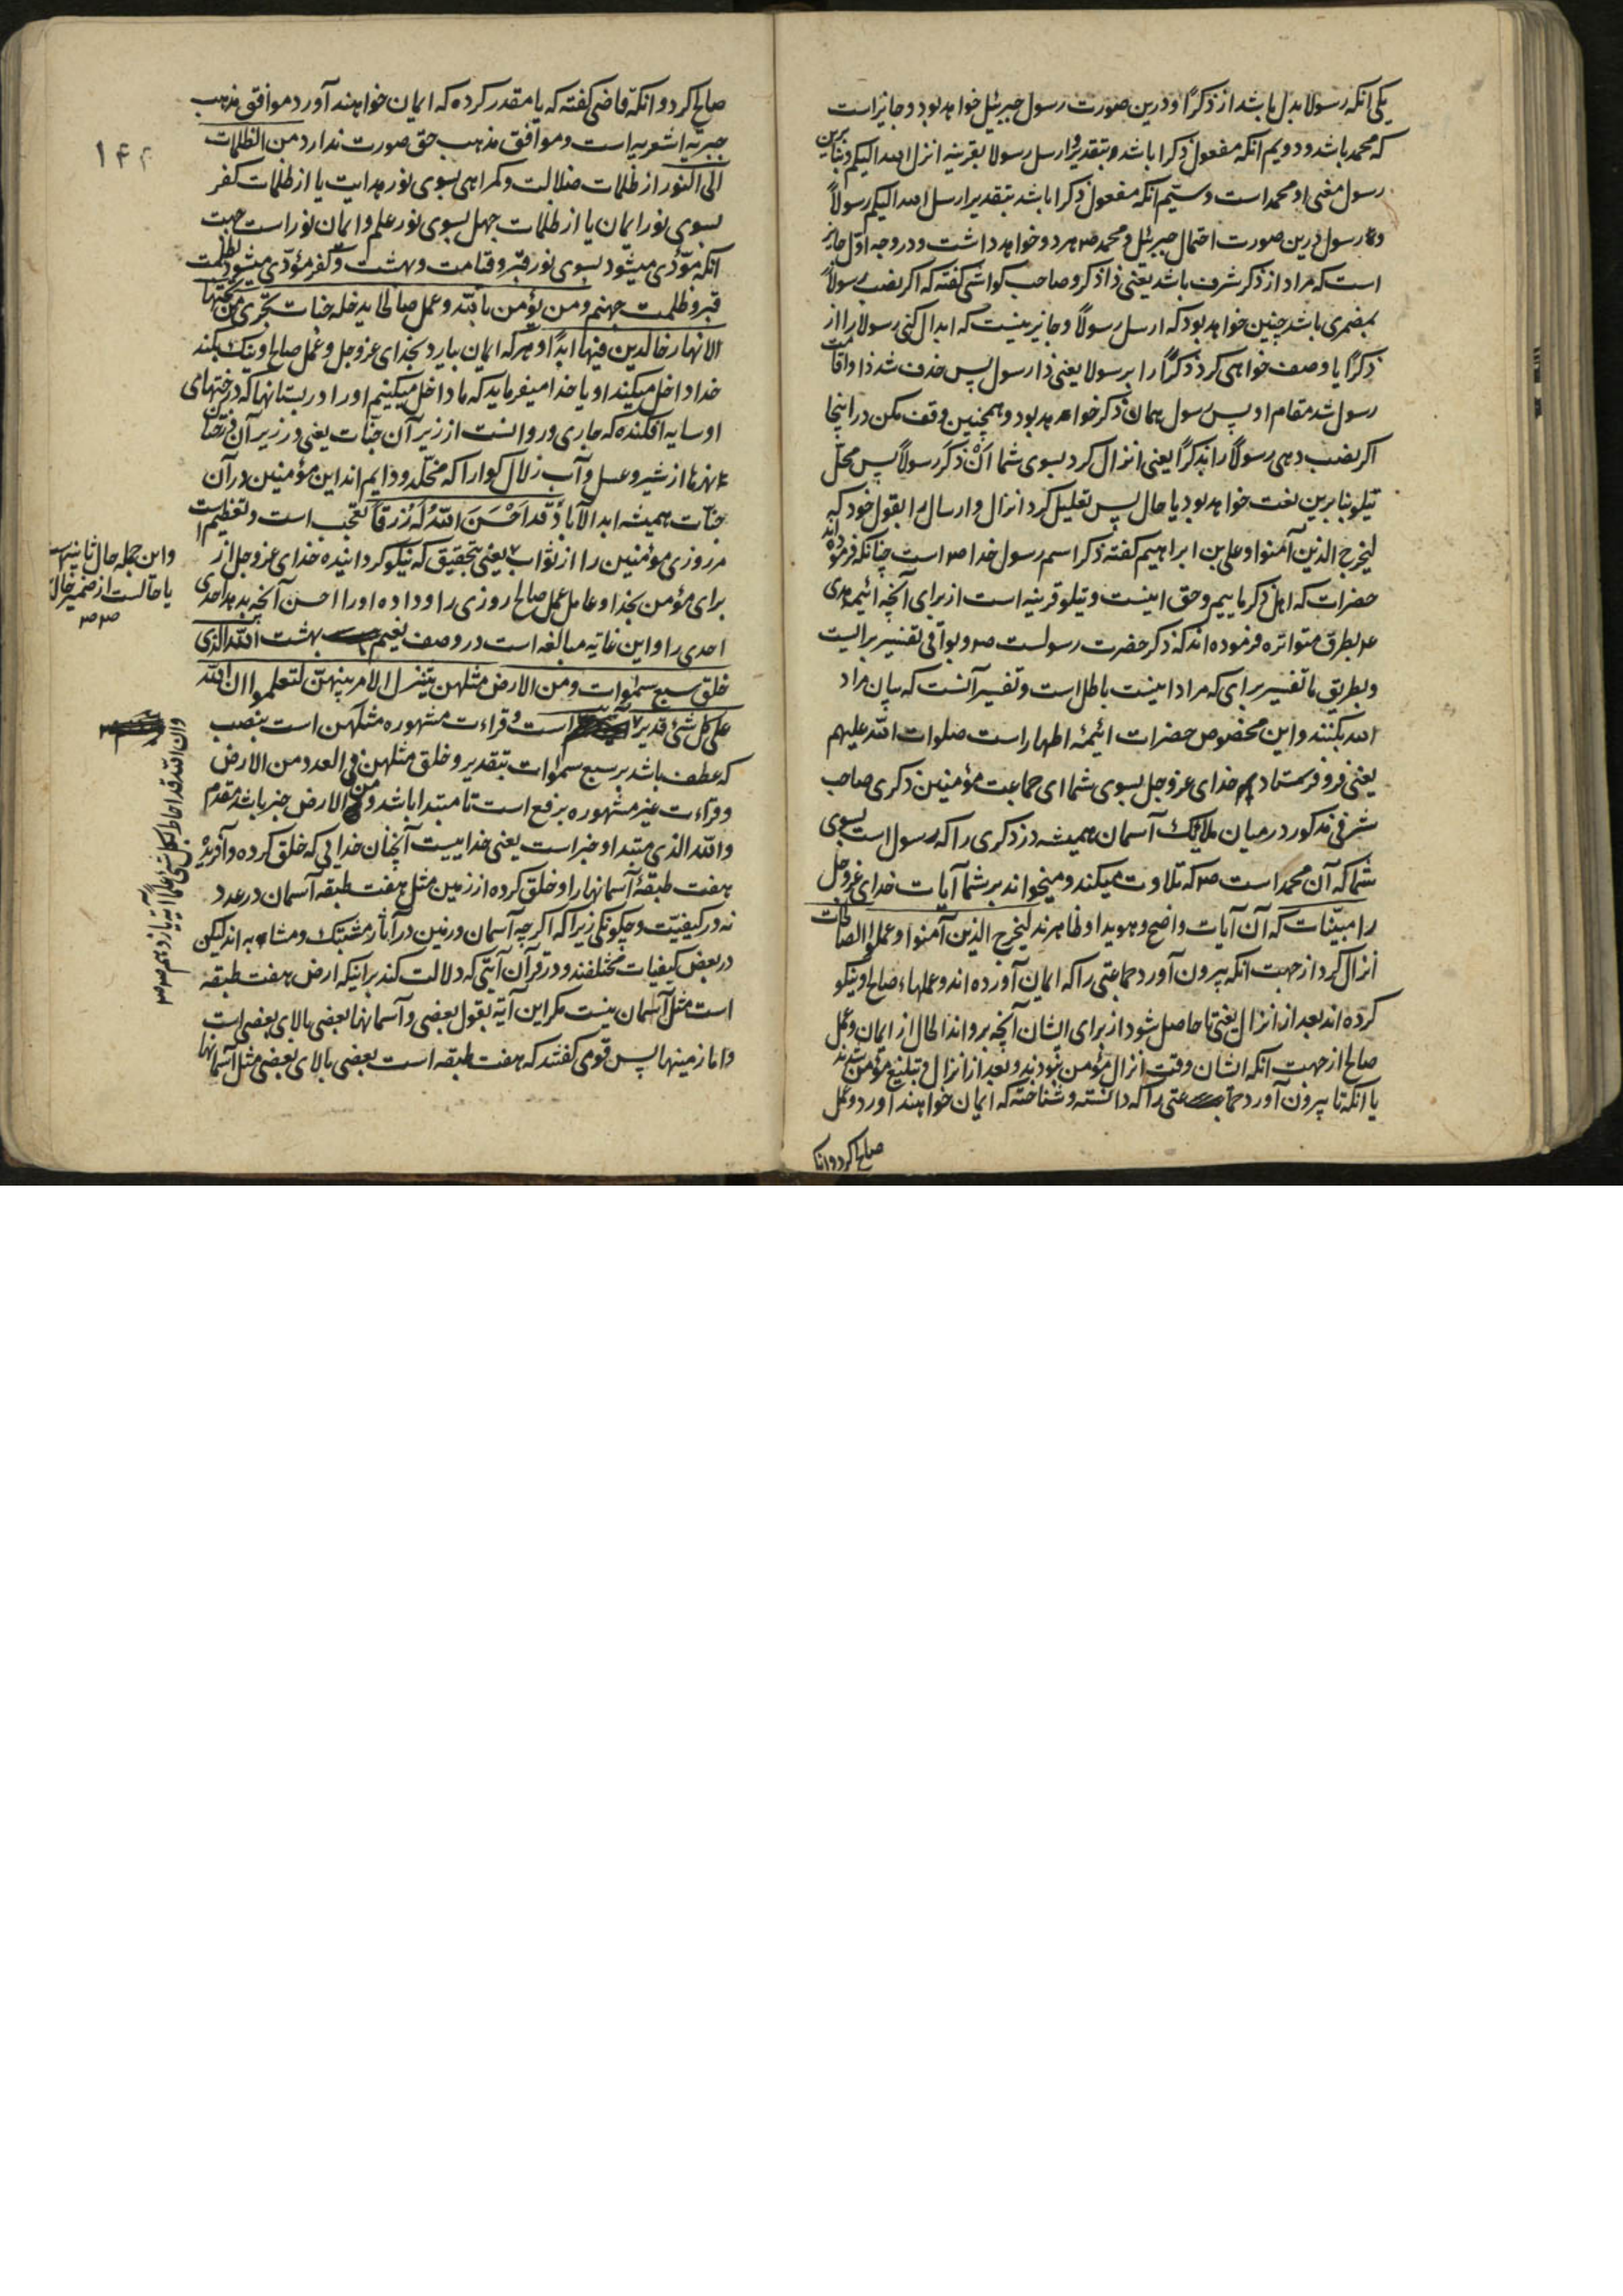 یکی انکه رسولا بدل باشد از ذکرًا و درین صورت رسول جبرئیل خواهد بود و جایز است
که محمد باشد و دویم انکه مفعول ذکرا باشد و بتقدیر و ارسل رسولا بقرینه انزل الله الیکم و بنابرین
رسول معنی او محمد است و سیّم انکه مفعول ذکرا باشد بتقدیر ارسل الله الیکم رسولاً
و رسول درین صورت احتمال جبرئیل و محمد ص هر دو خواهد داشت و در وجه اوّل جایز
است که مراد از ذکر شرف باشد یعنی ذا ذکر و صاحب کواشی گفته که اکر نصب رسولاً
بمضمری باشد چنین خواهد بود که ارسل رسولاً و جایز نیست که ابدال کنی رسولا را از
ذکرًا یا وصف خواهی کرد ذکرًا را برسولا یعنی ذا رسول پس حذف شد ذا و اقامت
رسول شد مقام او پس رسول همان ذکر خواهد بود و همچنین وقف مکن در اینجا
اکر نصب دهی رسولاً را بذکرًا یعنی انزال کرد بسوی شما اَنْ ذکَرَ رسولاً پس محلّ
یتلو بنا برین نعت خواهد بود یا حال پس تعلیل کرد انزال و ارسال را بقول خود که
لیخرج الذین آمنوا و علی بن ابراهیم گفته ذکر اسم رسول خدا ص است چنانکه فرموده اند
حضرات که اهل ذکر ماییم و حق اینست و یتلو قرینه است از برای آنچه ائیمه هدی
ع بطرق متواتره فرموده اند که ذکر حضرت رسولست ص و بواقی تفسیر برایست
و بطریق ما تفسیر برای که مراد اینست باطل است و تفسیر آنست که بیان مراد
الله بکنند و این مخصوص حضرات ائیمه اطهار است صلوات الله علیهم
یعنی فرو فرستاد خدای عز و جل بسوی شما ای جماعت مؤمنین ذکری صاحب
شرفی مذکور در میان ملایک آسمان همیشه در ذکری را که رسول است بسوی
شما که آن محمد است ص که تلاوت میکند و میخواند بر شما آیات خدای عز و جل
را مبیّنات که آن آیات واضح و هویدا و ظاهرند لیخرج الذین آمنوا و عملوا الصالحات
انزال کرد از جهت انکه بیرون آورد جماعتی را که ایمان آورده اند و عملهاء صالح و نیکو
کرده اند بعد از انزال یعنی تا حاصل شود از برای ایشان آنچه برو اند الحال از ایمان و عمل
صالح از جهت انکه ایشان وقت انزال مؤمن نبودند و بعد از انزال و تبلیغ مؤمن شدند
یا انکه تا بیرون آورد جماعتی را که دانسته و شناخته که ایمان خواهند آورد و عمل
صالح کرد و انکه
۱۴۴
صالح کرد و انکه قاضی گفته که یا مقدر کرده که ایمان خواهند آورد موافق مذهب
جبریّه اشعریه است و موافق مذهب حق صورت ندارد من الظلمات
الی النور از ظلمات ضلالت و کمراهی بسوی نور هدایت یا از ظلمات کفر
بسوی نور ایمان یا از ظلمات جهل بسوی نور علم و ایمان نور است جهت
آنکه مؤدّی میشود بسوی نور قبر و قیامت و بهشت و کفر مؤدّی میشود بظلمت
قبر و ظلمت جهنم و من یؤمن بالله و عمل صالحا یدخله جنات تجری من تحتها
الانهار خالدین فیها ابدًا و هر که ایمان بیارد بخدای عز و جل و عمل صالح و نیک بکند
خدا داخل میکند او یا خدا میفرماید که ما داخل میکنیم او را در بستانها که درختهای
او سایه افکنده که جاری و روانست از زیر آن جنات یعنی در زیر آن درختان
نهرها از شیر و عسل و آب زلال کوارا که مخلّد و دایم اند این مؤمنین در آن
جنّات همیشه ابد الآباد قَد اَحْسَنَ اللهُ لَهُ رِزقاً تعجّب است و تعظیم است
مر روزی مؤمنین را از ثواب یعنی بتحقیق که نیکو کردانیده خدای عز و جل از
برای مؤمن بخدا و عامل عمل صالح روزی را و داده او را احسن آنچه بدهد احدی
احدی را و این غایه مبالغه است در وصف نعیم بهشت الله الذی
خلق سبع سموات و من الارض مثلهن یتنزل الامر بینهنّ لتعلموا ان الله
علی کل شئ قدیر است و قراءت مشهوره مثلهن است بنصب
که عطف باشد بر سبع سموات بتقدیر و خلق مثلهن فی العدد من الارض
و قراءت غیر مشهوره برفع است تا مبتدا باشد و من الارض خبر باشد مقدم
و الله الذی مبتدا و خبر است یعنی خداییست آنچنان خدایی که خلق کرده و آفریده
هفت طبقهٔ آسمانها را و خلق کرده از زمین مثل هفت طبقه آسمان در عدد
نه در کیفیّت و چکونکی زیرا که اکر چه آسمان و زمین در آثار مشتبک و مشابه اند لیکن
در بعض کیفیات مختلفند و در قرآن آیتی که دلالت کند بر اینکه ارض هفت طبقه
است مثل آسمان نیست مکر این آیه بقول بعضی و آسمانها بعضی بالای بعضی است
و اما زمینها پس قومی کفتند که هفت طبقه است بعضی بالای بعضی مثل آسمانها
و این جمله حال ثانیه است
یا حالست از ضمیر خالدین
و ان الله قد احاط بکل شئ علما آیه یازدهم